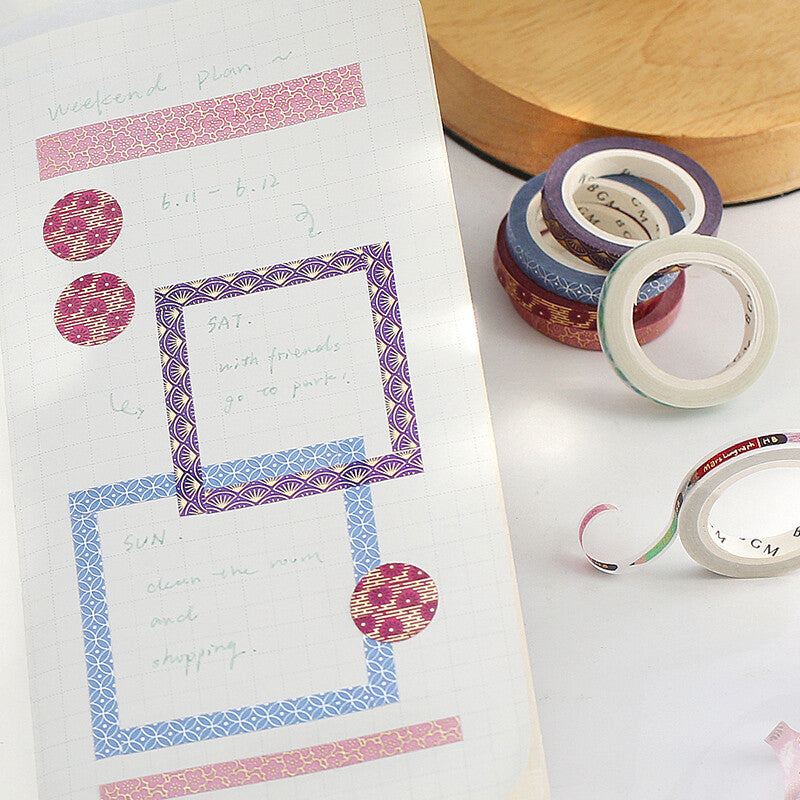 weekend plan ~
6.11 - 6.12
SAT.
with friends
go to park!
SUN.
clean the room
and
shopping.
BGM
BGM
Marslumograph HB
BGM